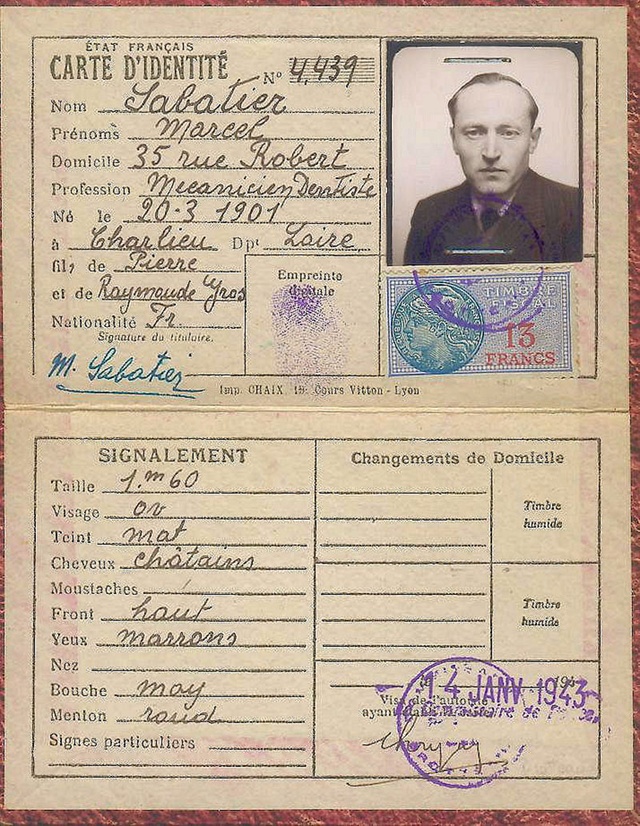 ÉTAT FRANÇAIS
CARTE D'IDENTITÉ Nº 4.439
Nom Sabatier
Prénoms Marcel
Domicile 35 rue Robert
Profession Mecanicien Dentiste
Né le 20-3 1901
à Charlieu Dpt Loire
fils de Pierre
et de Raymonde Gros
Nationalité Fr.
Signature du titulaire.
M. Sabatier
Empreinte
digitale
TIMBRE
FISCAL
13
FRANCS
Imp. CHAIX, 19, Cours Vitton - Lyon
SIGNALEMENT
Taille 1.m60
Visage ov
Teint mat
Cheveux châtains
Moustaches /
Front haut
Yeux marrons
Nez
Bouche moy
Menton rond
Signes particuliers
Changements de Domicile
Timbre
humide
Timbre
humide
14 JANV 1943
Visa de l'autorité
ayant